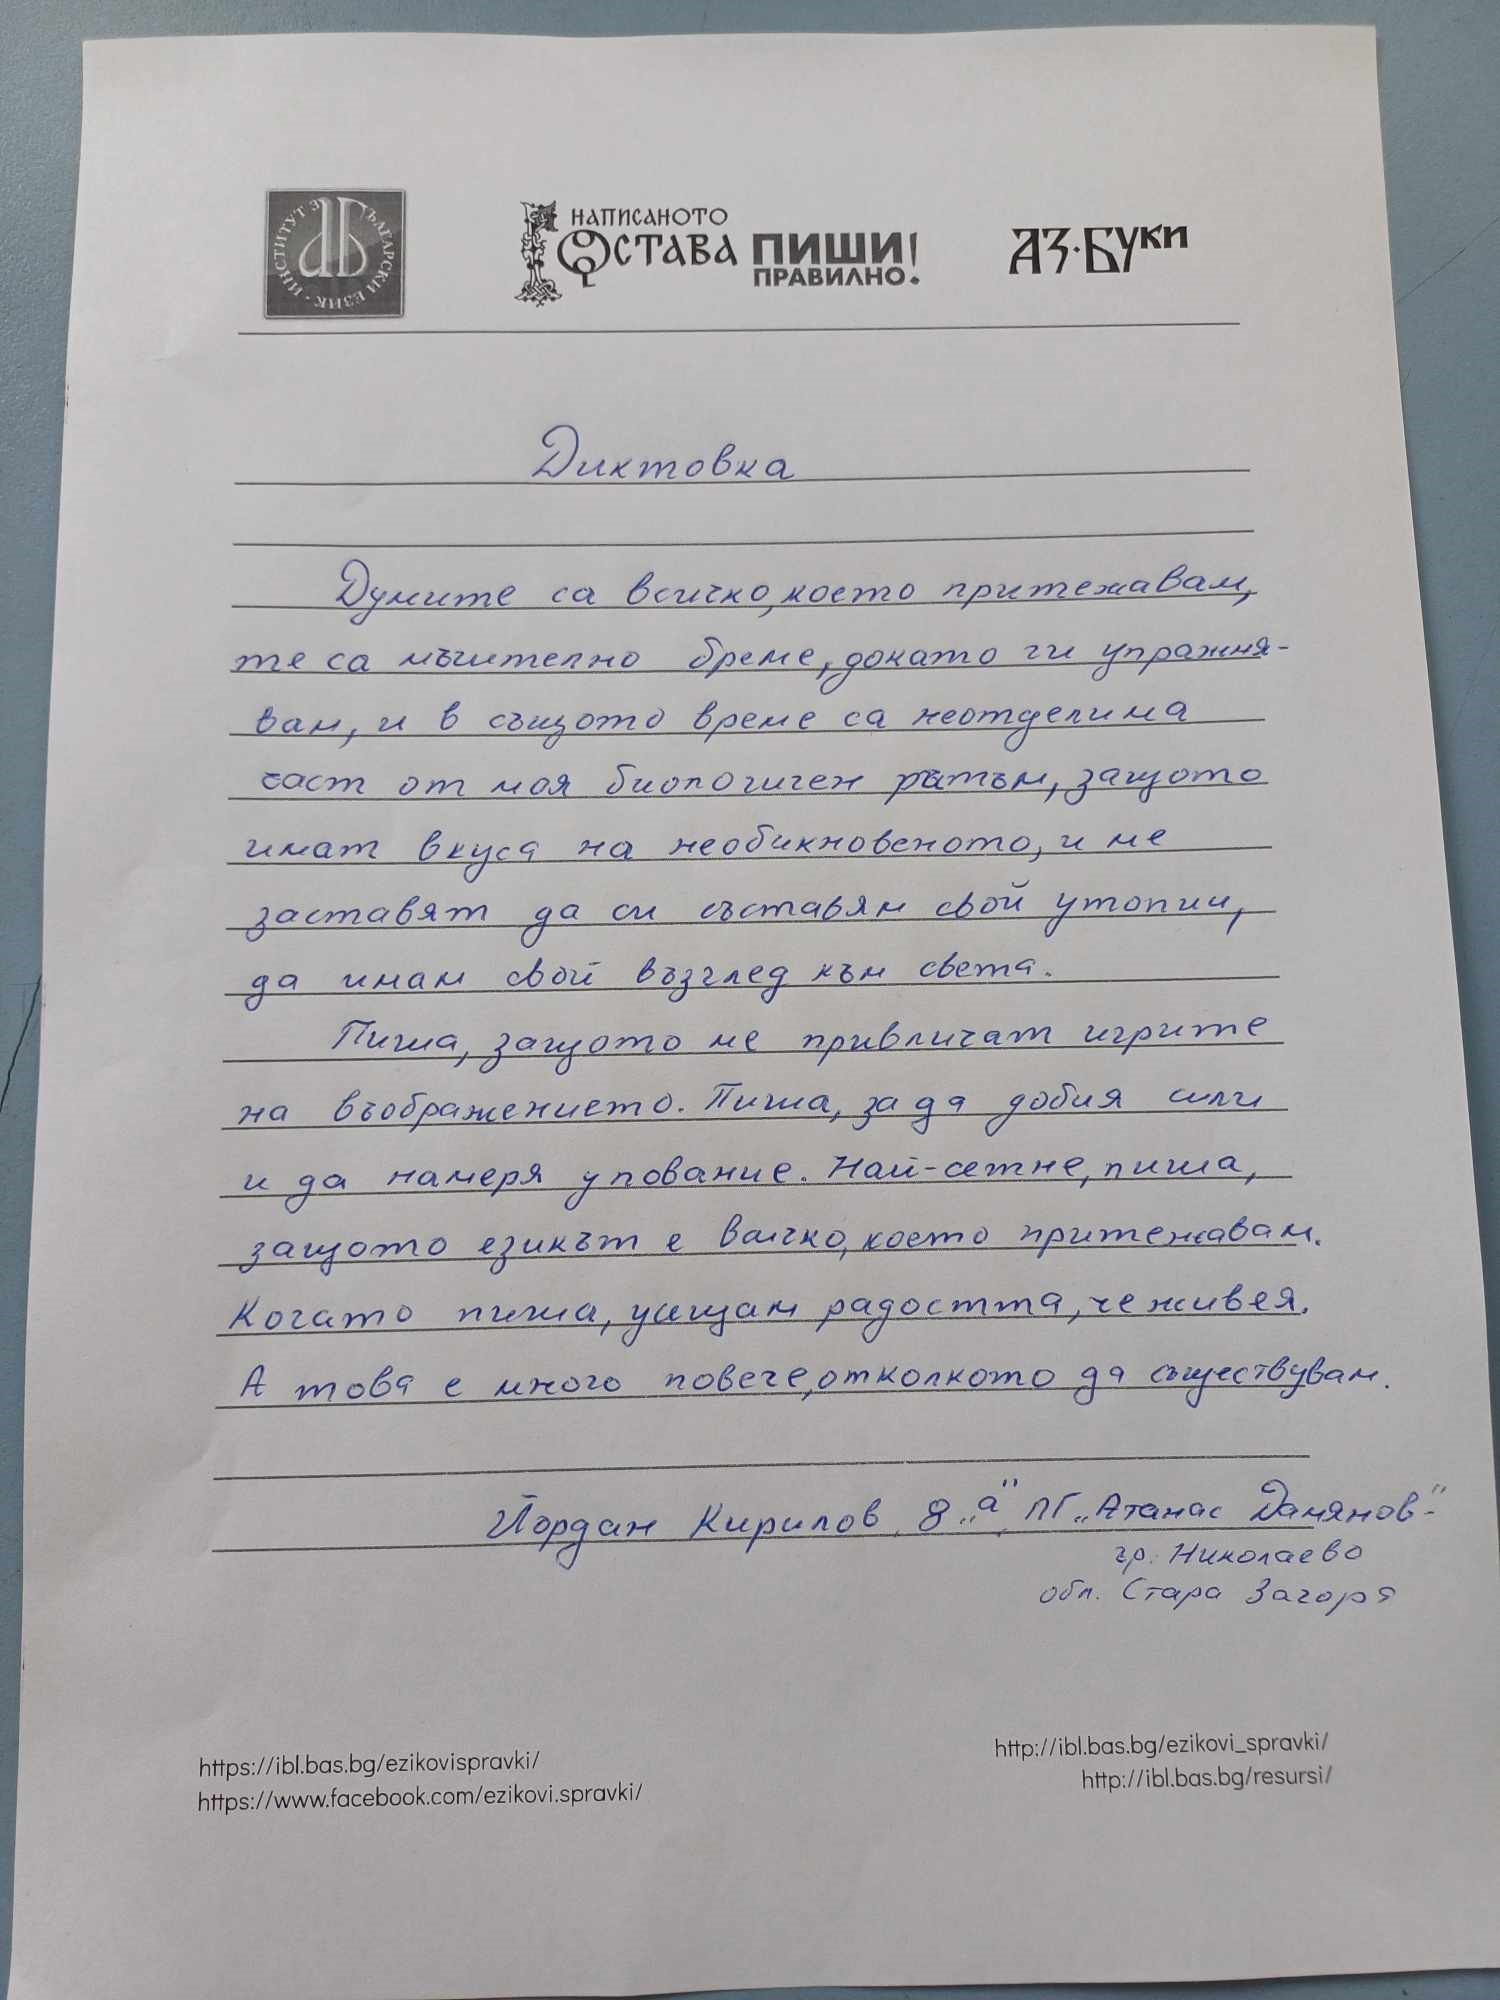 ИНСТИТУТ ЗА БЪЛГАРСКИ ЕЗИК
НАПИСАНОТО
ОСТАВА ПИШИ
ПРАВИЛНО!
АЗ·БУКИ
Диктовка
Думите са всичко, което притежавам,
те са мъчително бреме, докато ги упражня-
вам, и в същото време са неотделима
част от моя биологичен ритъм, защото
имат вкуса на необикновеното, и ме
заставят да си съставям свой утопии,
да имам свой възглед към света.
Пиша, защото ме привличат игрите
на въображението. Пиша, за да добия сили
и да намеря упование. Най-сетне, пиша,
защото езикът е всичко, което притежавам.
Когато пиша, усещам радостта, че живея.
А това е много повече, отколкото да съществувам.
Йордан Кирилов, 8 „а“, ПГ „Атанас Дамянов“-
гр. Николаево
обл. Стара Загора
https://ibl.bas.bg/ezikovispravki/
https://www.facebook.com/ezikovi.spravki/
http://ibl.bas.bg/ezikovi_spravki/
http://ibl.bas.bg/resursi/